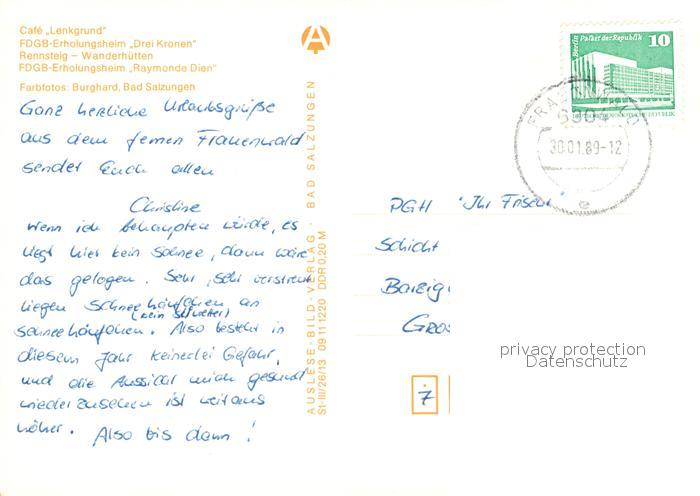 Café „Lenkgrund“
FDGB-Erholungsheim „Drei Kronen“
Rennsteig – Wanderhütten
FDGB-Erholungsheim „Raymonde Dien“
Farbfotos: Burghard, Bad Salzungen
Ganz herzliche Urlaubsgrüße
aus dem fernen Frauenwald
sendet Euch allen
Christine
Wenn ich behaupten würde, es
liegt hier kein Schnee, dann wäre
das gelogen. Sehr, sehr verstreut
liegen Schneehäufchen an
(kein Schreiber)
Schneehäufchen. Also besteht in
diesem Jahr keinerlei Gefahr,
und die Aussicht mich gesund
wiederzusehen ist weitaus
höher. Also bis dann!
AUSLESE-BILD-VERLAG BAD SALZUNGEN
St-III/26/13 09 11 1220 DDR 0,20 M
Berlin Palast der Republik
10
DEUTSCHE DEMOKRATISCHE REPUBLIK
FRAUENWALD
6304
30.01.89-12
e
PGH "Ihr Friseur
Schicht
Gros
7
privacy protection
Datenschutz